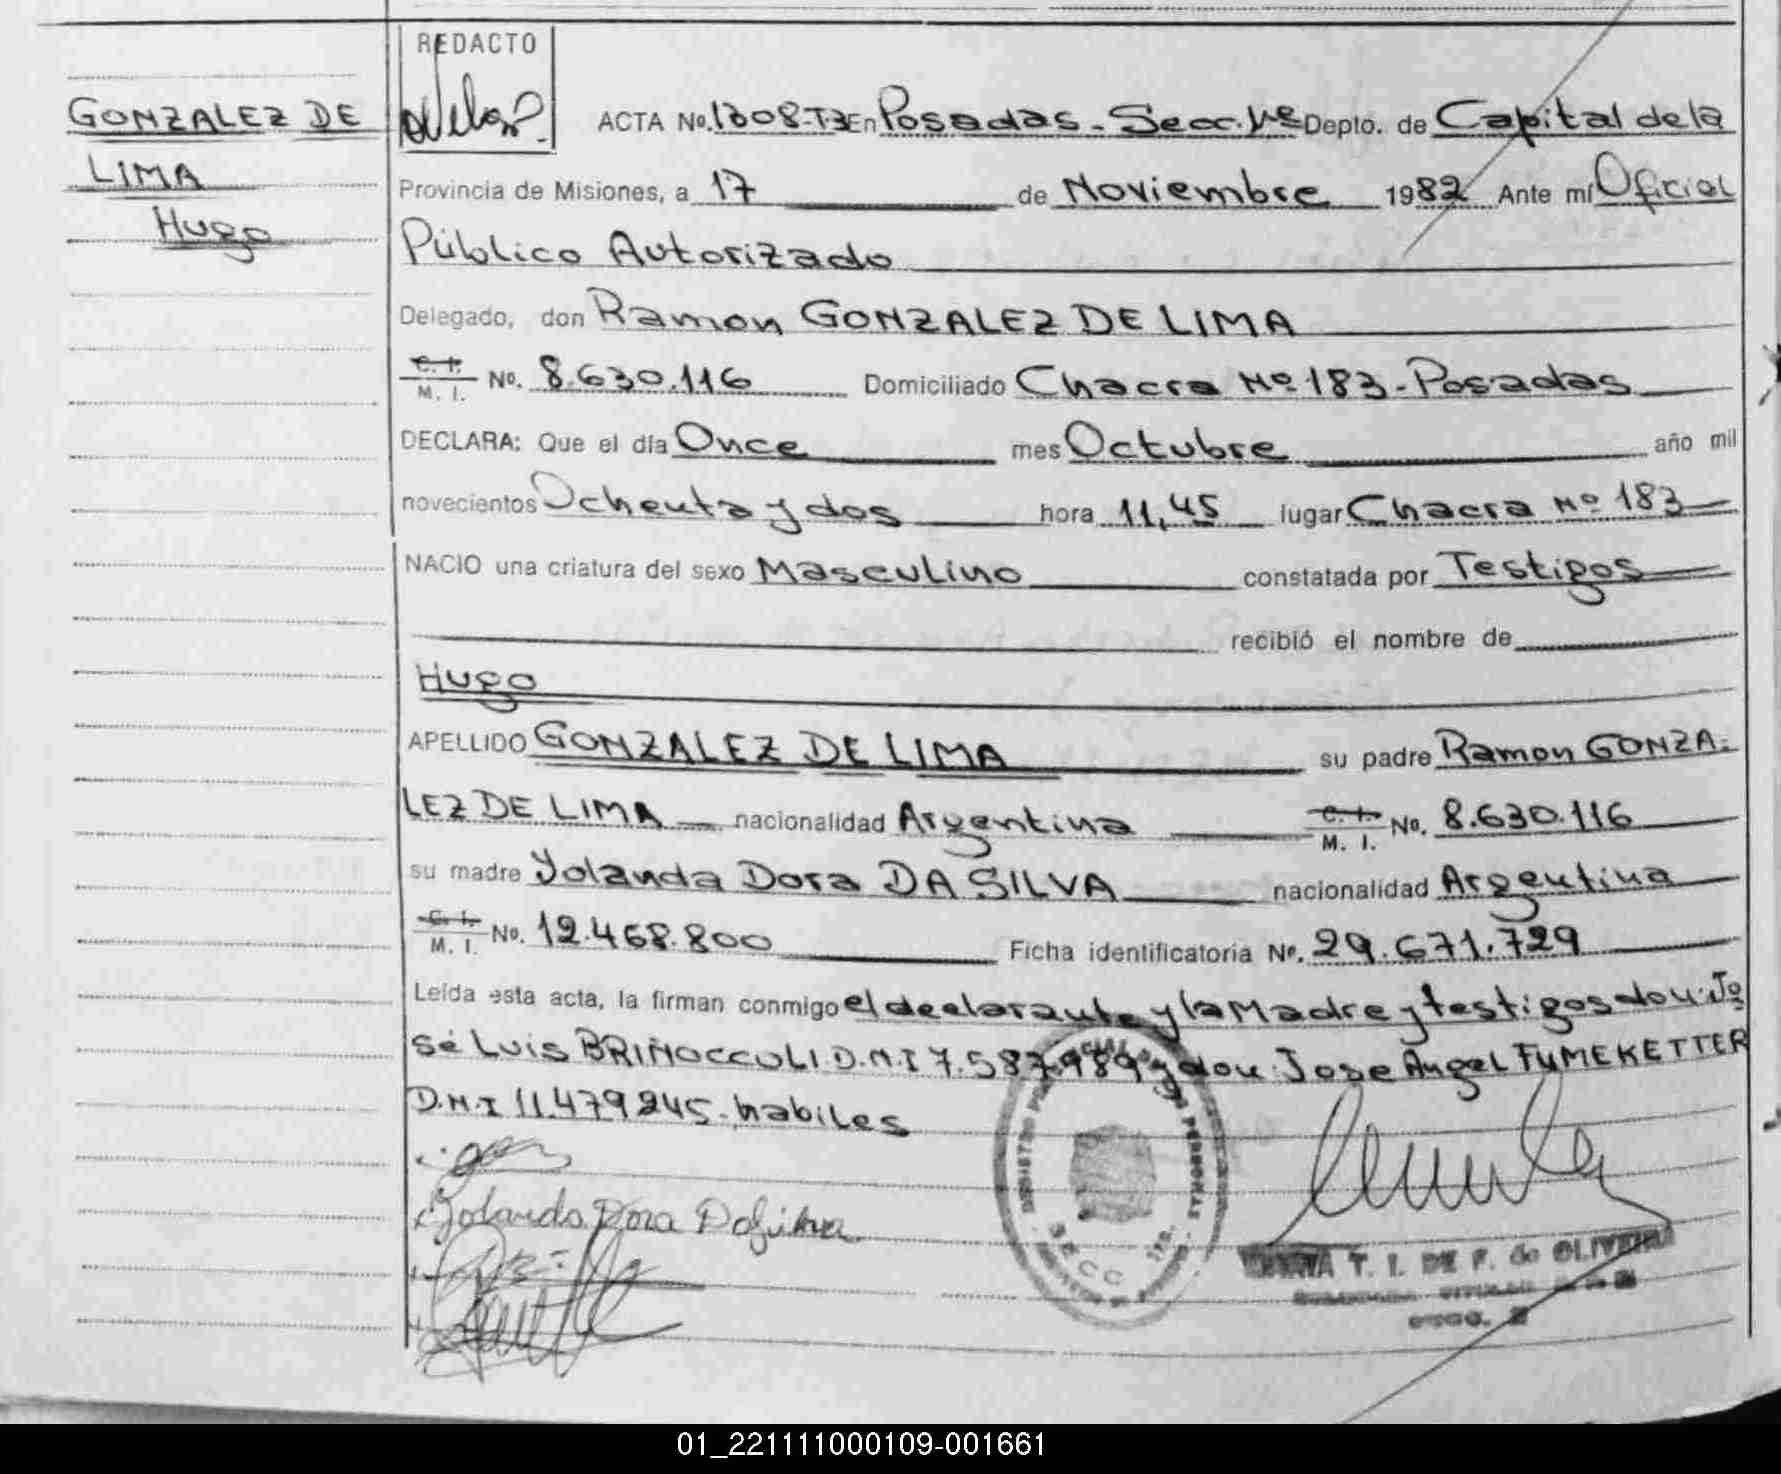 REDACTO
GONZALEZ DE
LIMA
Hugo
ACTA No. 1308-T3 En Posadas - Secc. 1ra Depto. de Capital de la
Provincia de Misiones, a 17 de Noviembre 1982 Ante mí Oficial
Público Autorizado
Delegado, don Ramon GONZALEZ DE LIMA
C. I. M. I. No. 8.630.116 Domiciliado Chacra Nº 183 - Posadas
DECLARA: Que el día Once mes Octubre año mil
novecientos Ochenta y dos hora 11,45 lugar Chacra Nº 183
NACIO una criatura del sexo Masculino constatada por Testigos
recibió el nombre de
Hugo
APELLIDO GONZALEZ DE LIMA su padre Ramon GONZA-
LEZ DE LIMA nacionalidad Argentina C. I. M. I. No. 8.630.116
su madre Yolanda Dora DA SILVA nacionalidad Argentina
C. I. M. I. No. 12.468.800 Ficha identificatoria Nº. 29.671.729
Leída esta acta, la firman conmigo el declarante y la Madre y testigos don: Jo
sé Luis BRIÑOCCOLI D.N.I 7.587.989 y don Jose Angel FUMEKETTER
D.N.I 11.479.245. habiles
Yolanda Dora Da Silva
SECC 1ra.
T. I. DE F. de OLIVEIRA
01_221111000109-001661